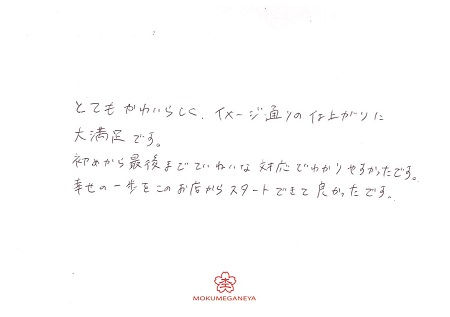 とてもかわいらしく、イメージ通りの仕上がりに
大満足です。
初めから最後までていねいな対応でわかりやすかったです。
幸せの一歩をこのお店からスタートできて良かったです。
杢
MOKUMEGANEYA